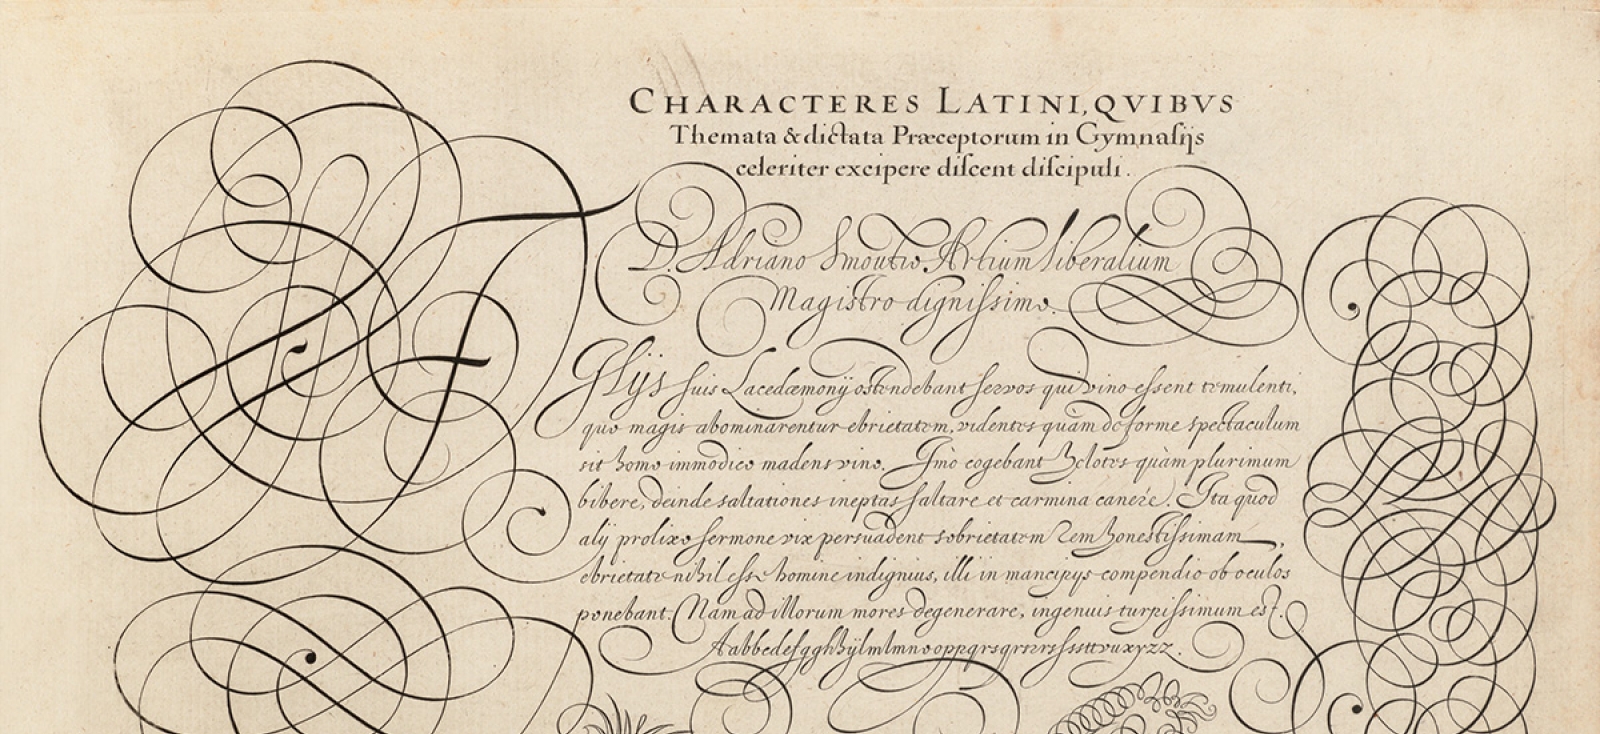 CHARACTERES LATINI, QVIBVS
Themata & dictata Præceptorum in Gymnasijs
celeriter excipere discent discipuli.
D. Adriano Smoutio, Artium liberalium
Magistro dignissimo.
Filijs suis Lacedæmonij ostendebant servos qui vino essent temulenti,
quo magis abominarentur ebrietatem, videntes quàm deforme spectaculum
sit homo immodico madens vino. Imò cogebant Helotes quàm plurimum
bibere, deinde saltationes ineptas saltare et carmina canere. Ita quod
alij prolixo sermone vix persuadent sobrietatem rem honestissimam,
ebrietate nihil esse homine indignius, illi in mancipijs compendio ob oculos
ponebant. Nam ad illorum mores degenerare, ingenuis turpissimum est.